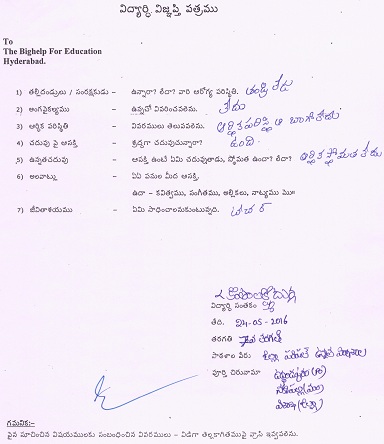 విద్యార్థి విజ్ఞప్తి పత్రము
To
The Bighelp For Education
Hyderabad.
1) తల్లీదండ్రులు / సంరక్షకుడు – ఉన్నారా? లేదా? వారి ఆరోగ్య పరిస్థితి. తండ్రి లేడు
2) అంగవైకల్యము – ఉన్నచో వివరించవలెను. లేదు
3) ఆర్థిక పరిస్థితి – వివరములు తెలుపవలెను. ఆర్థిక పరిస్థితి బాగాలేదు
4) చదువు పై ఆసక్తి – శ్రద్ధగా చదువుచున్నారా? ఉంది.
5) ఉన్నతచదువు – ఆసక్తి ఉంటే ఏమి చదువుతాడు, స్తోమత ఉందా? లేదా? ఆర్థిక స్తోమత లేదు
6) అలవాట్లు – ఏఏ పనుల మీద ఆసక్తి.
ఉదా – కవిత్వము, సంగీతము, అల్లికలు, నాట్యము మొ॥
7) జీవితాశయము – ఏమి సాధించాలనుకుంటున్నది. టీచర్
విద్యార్థి సంతకం
తేది. 24-05-2016
తరగతి
పాఠశాల పేరు: జిల్లా పరిషత్ ఉన్నత పాఠశాల
పూర్తి చిరునామా
గమనిక:-
పైన సూచించిన విషయములకు సంబంధించిన వివరములు – విడిగా తెల్లకాగితముపై వ్రాసి ఇవ్వవలెను.